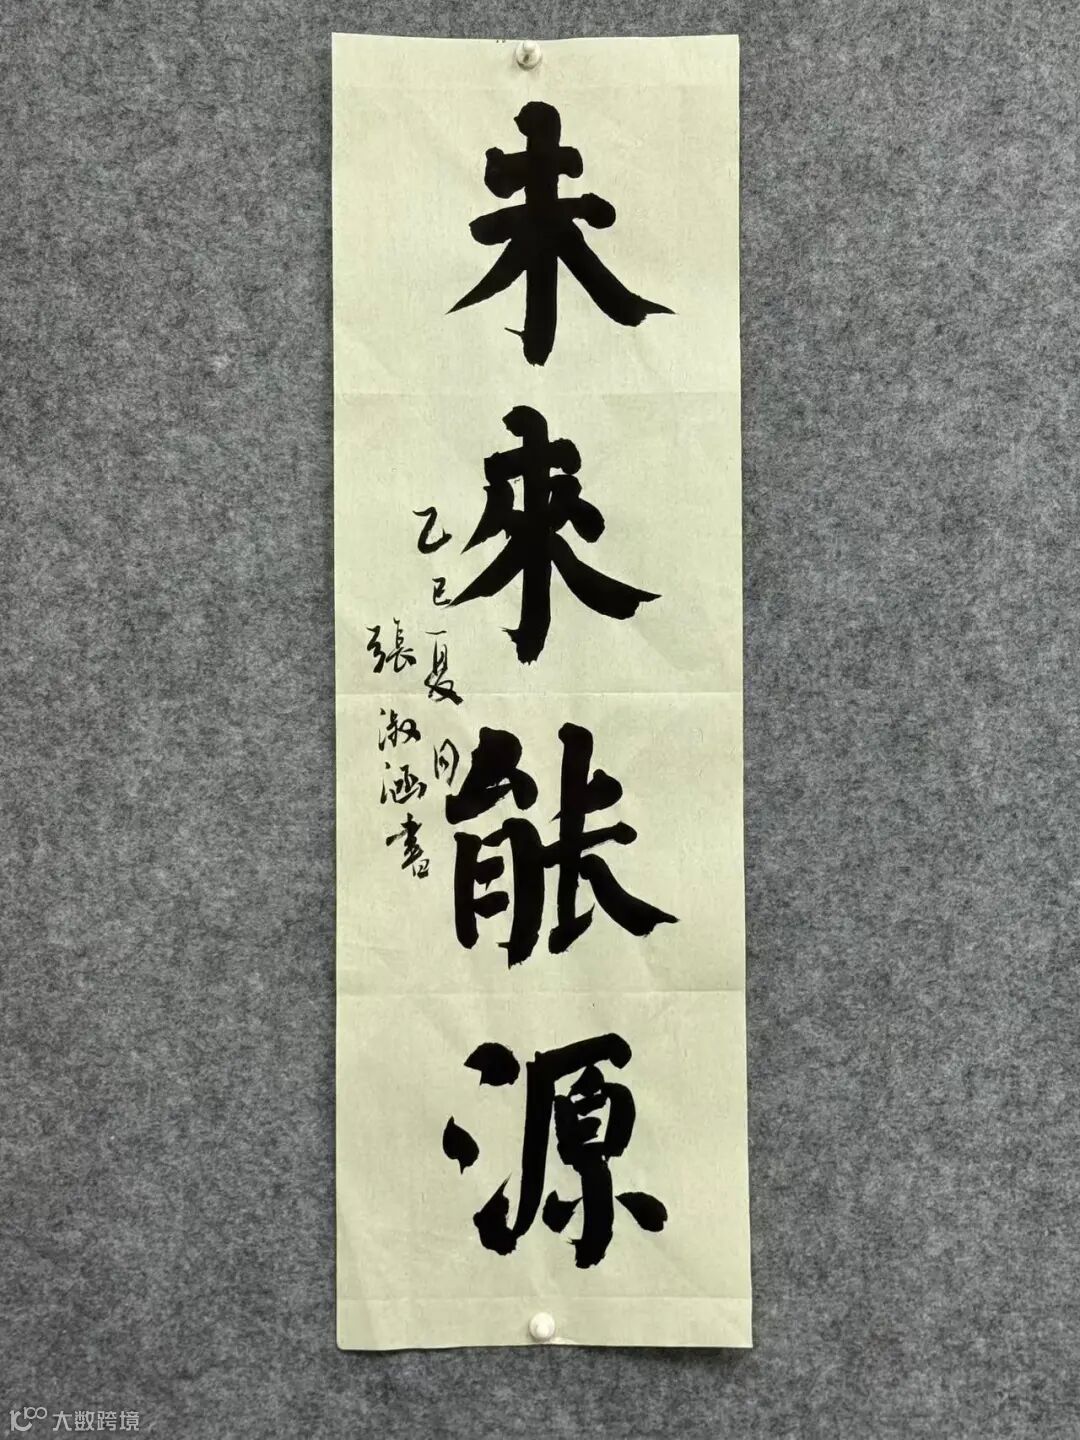 未來能源
乙巳夏月
張淑涵書
大数跨境